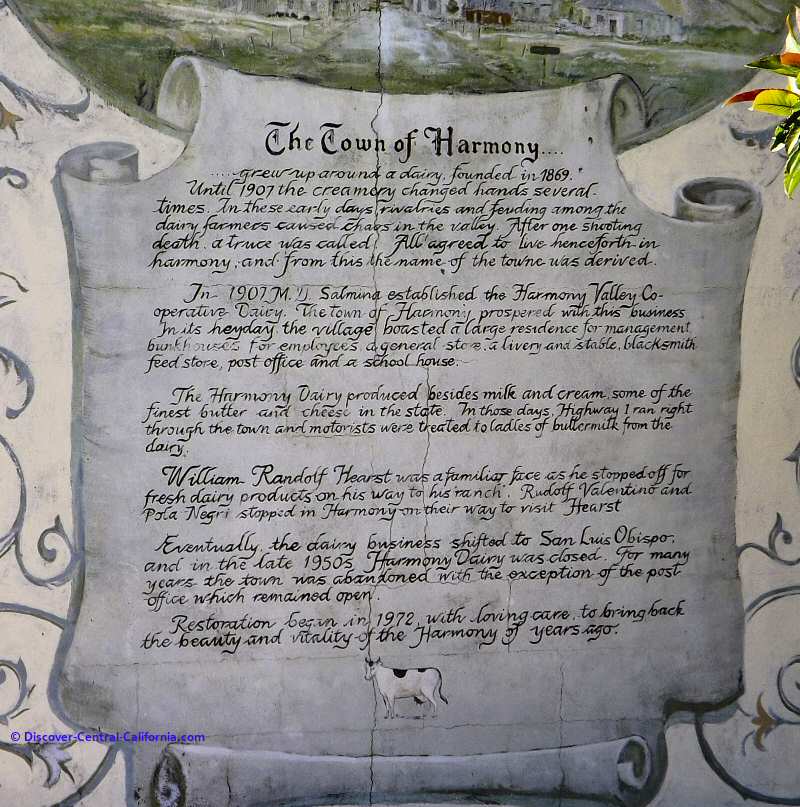 The Town of Harmony....
.....grew up around a dairy, founded in 1869.
Until 1907 the creamery changed hands several
times. In these early days, rivalries and feuding among the
dairy farmers caused chaos in the valley. After one shooting
death, a truce was called. All agreed to live henceforth in
harmony, and from this the name of the towne was derived.
In 1907 M. D. Salmina established the Harmony Valley Co-
operative Dairy. The town of Harmony prospered with this business
In its heyday, the village boasted a large residence for management,
bunkhouses for employees, a general store, a livery and stable, blacksmith
feed store, post office and a school house.
The Harmony Dairy produced besides milk and cream, some of the
finest butter and cheese in the state. In those days, Highway 1 ran right
through the town and motorists were treated to ladles of buttermilk from the
dairy.
William Randolf Hearst was a familiar face as he stopped off for
fresh dairy products on his way to his ranch. Rudolf Valentino and
Pola Negri stopped in Harmony on their way to visit Hearst
Eventually, the dairy business shifted to San Luis Obispo,
and in the late 1950s Harmony Dairy was closed. For many
years the town was abandoned with the exception of the post
office which remained open.
Restoration began in 1972, with loving care, to bring back
the beauty and vitality of the Harmony of years ago.
© Discover-Central-California.com